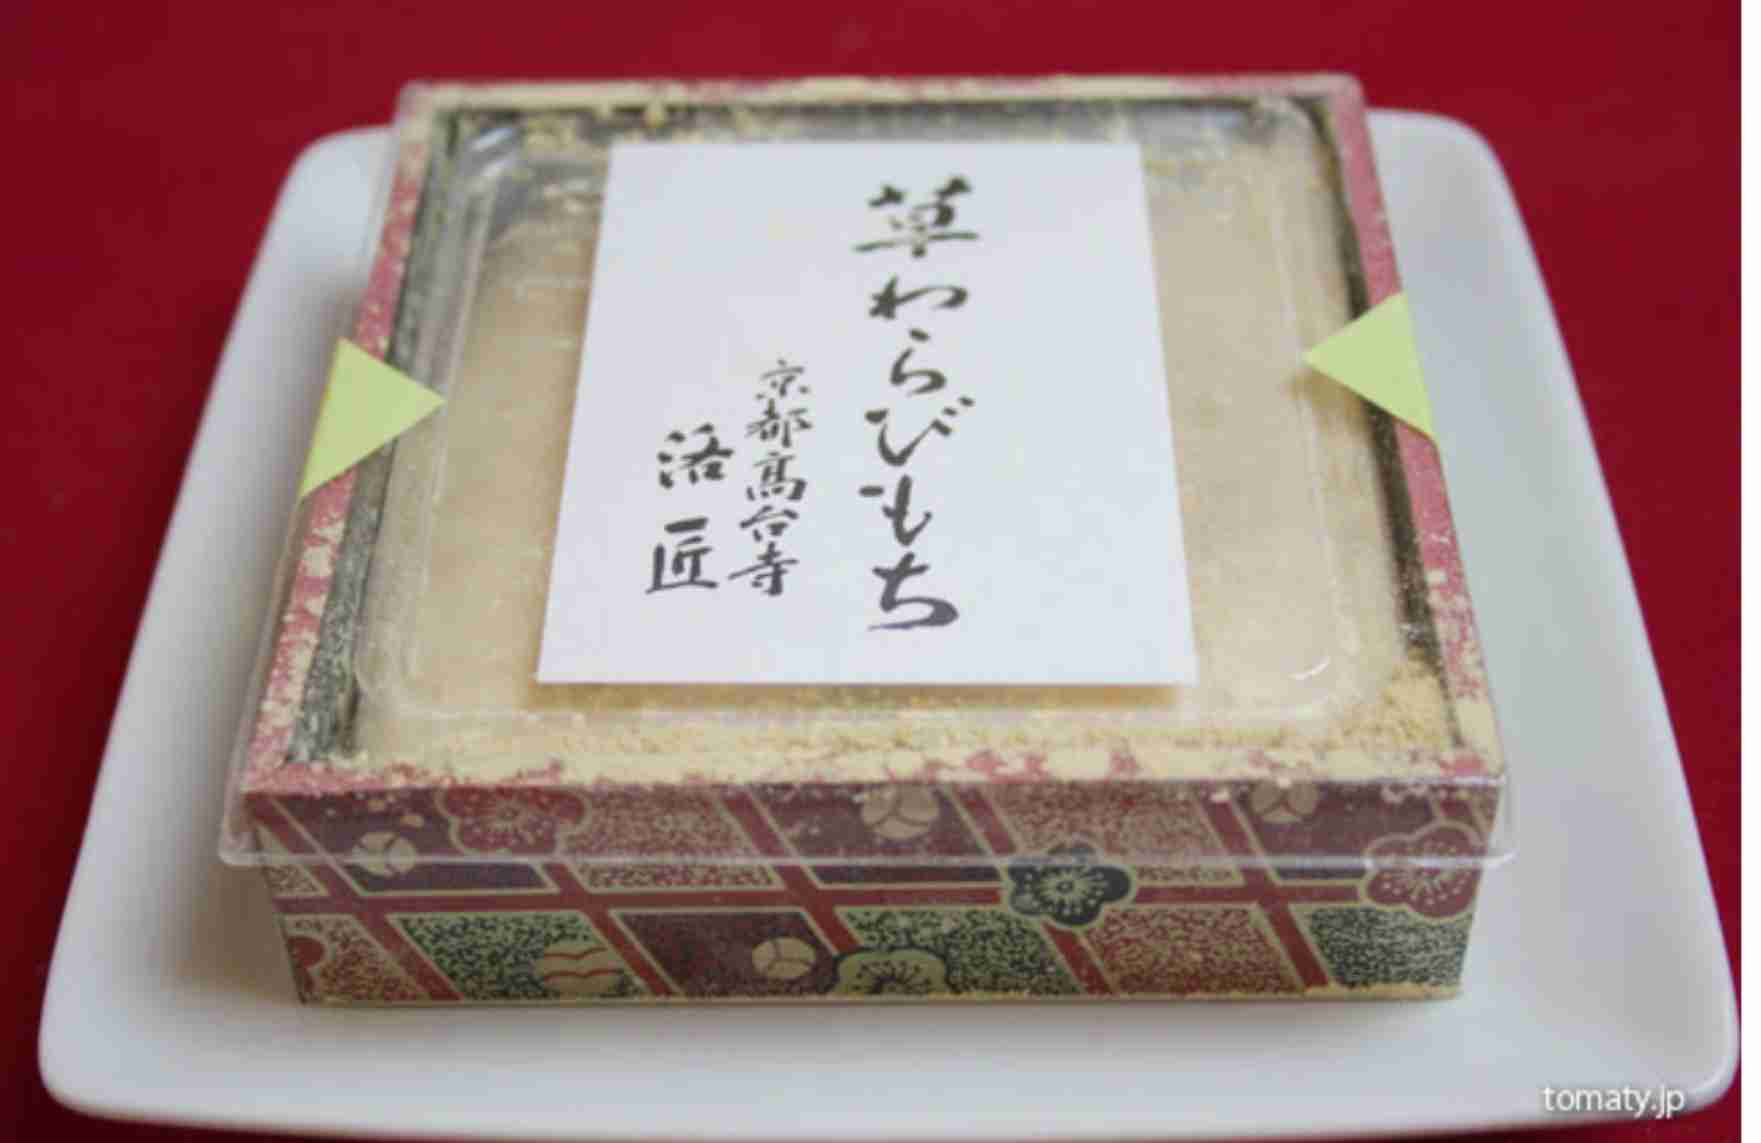 草わらびもち
京都高台寺
洛匠
tomaty.jp